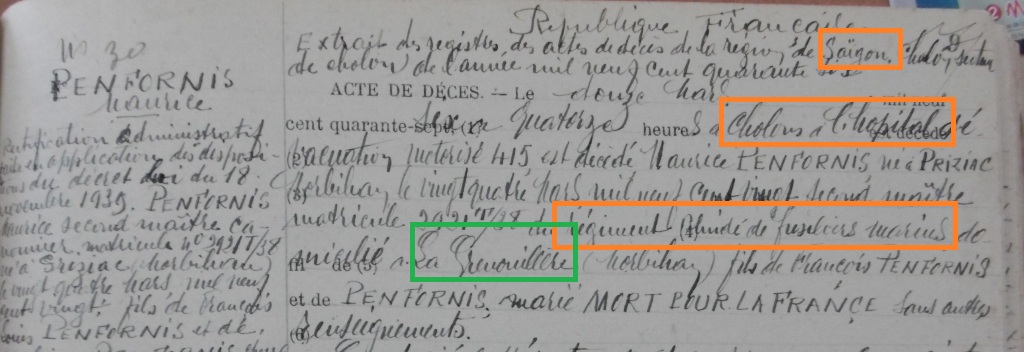 République Française
N° 20
PENFORNIS
Maurice
Rectification administrative
faite en application des disposi-
tions du décret loi du 18
novembre 1939. PENFORNIS
Maurice second maître ca-
nonnier. matricule n° 2921T/38
né à Priziac, Morbihan
le vingt quatre mars mil neuf
cent vingt. fils de François
PENFORNIS et de
Extrait des registres des actes de décès de la région de Saïgon, section
de cholon) de l'année mil neuf cent quarante six
ACTE DE DÉCES. — Le douze Mars mil neuf
cent quarante-sept (1) six à Quatorze heures à Cholon à l'hôpital
évacuation motorisé 415 est décédé Maurice PENFORNIS né à PRIZIAC
Morbihan le vingt quatre Mars mil neuf cent vingt second maître
matricule 2921T/38 du régiment blindé de fusiliers marins do-
micilié à La Grenouillère (Morbihan) fils de François PENFORNIS
et de PENFORNIS. marié MORT POUR LA FRANCE Sans autres
renseignements.